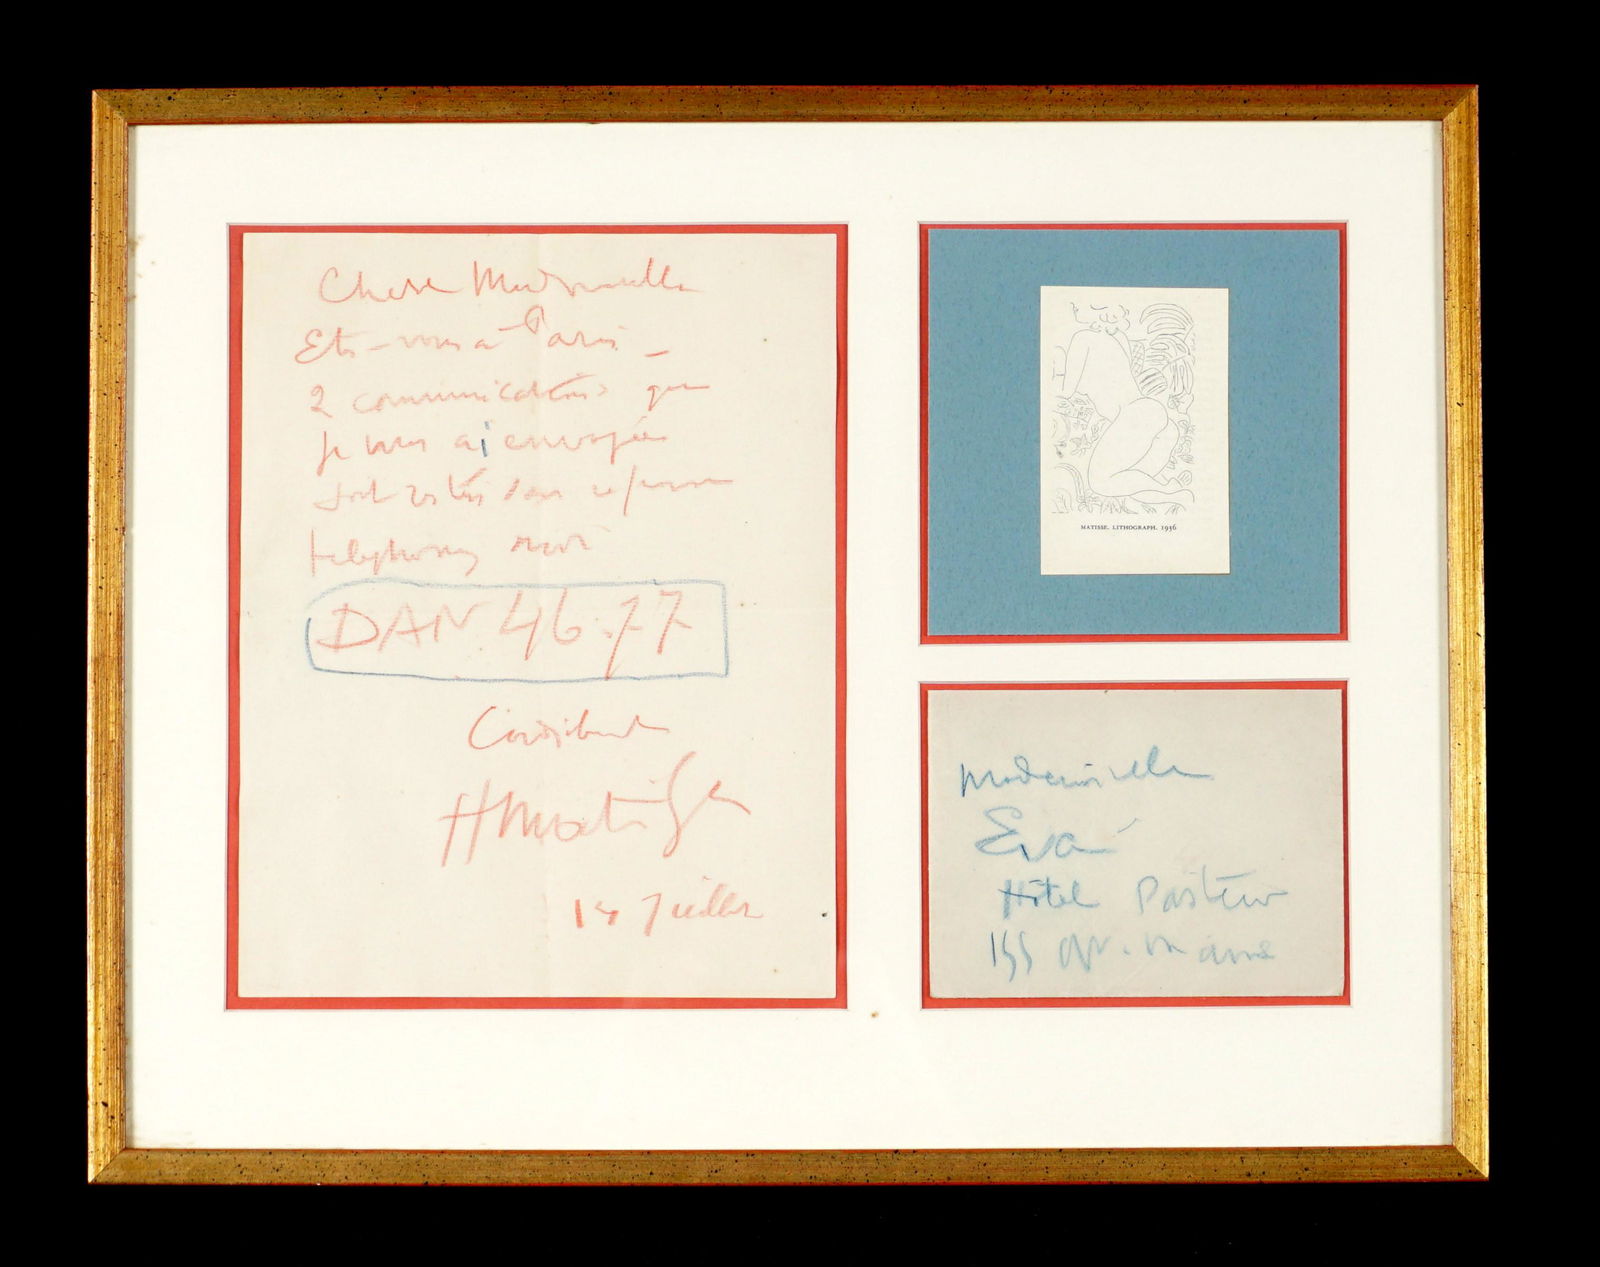 Chere Mademoiselle
Etes-vous à Paris -
2 communications que
je vous ai envoyées
sont restées sans réponse
telephonez moi
DAN 46.77
Cordialement
HMatisse
14 Juillet
MATISSE. LITHOGRAPH. 1936
Mademoiselle
Eva
Hôtel Pasteur
155 Av. Maine